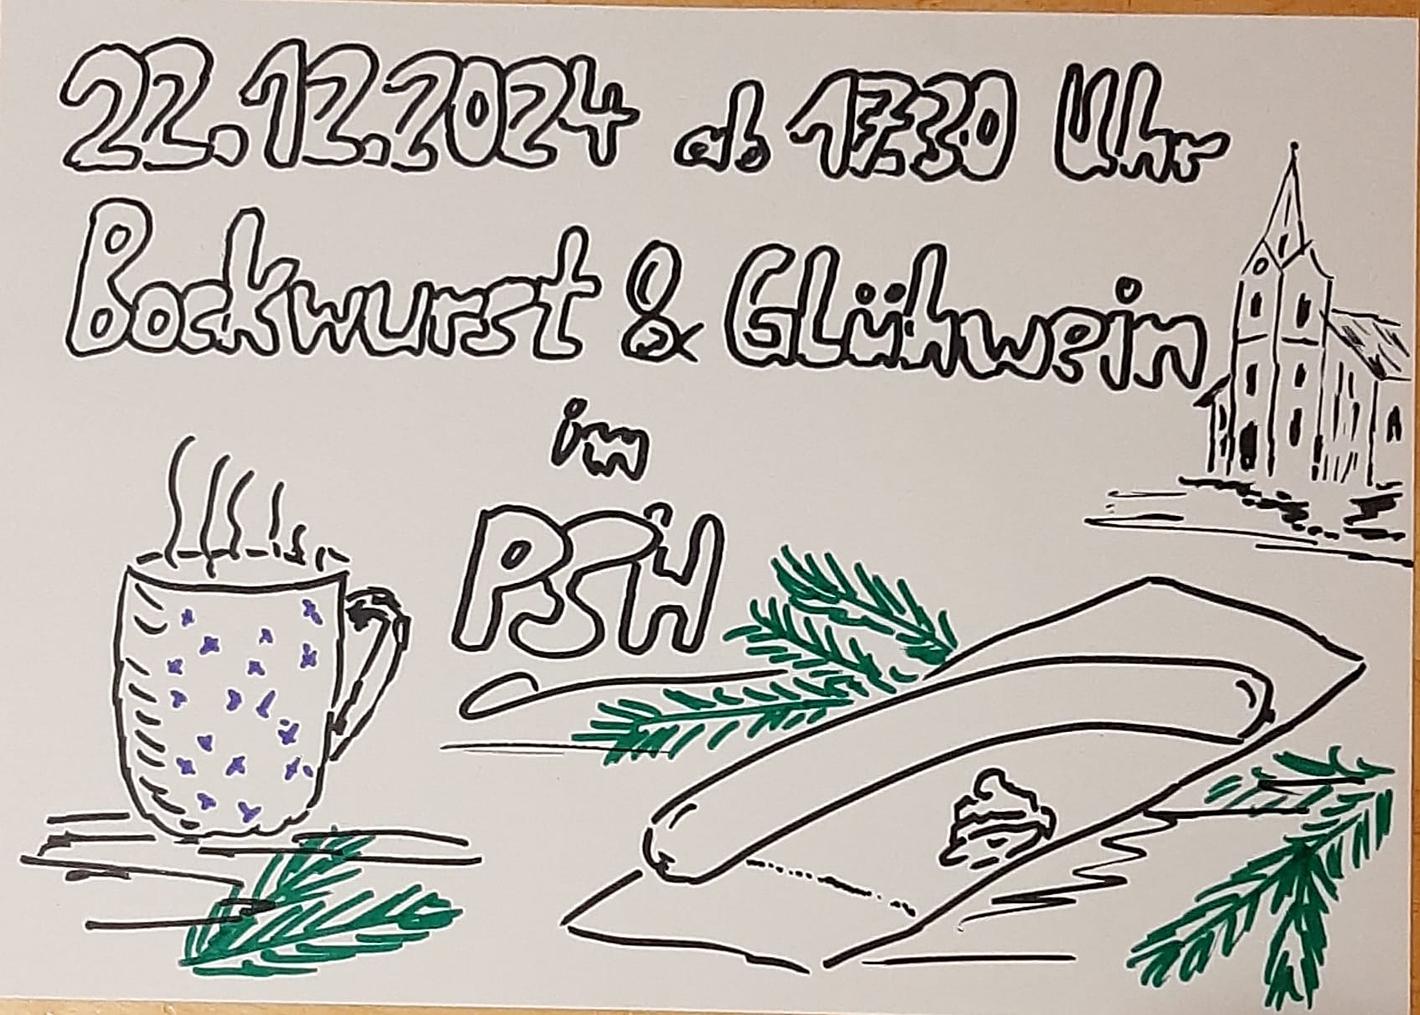 22.12.2024 ab 17:30 Uhr
Bockwurst & Glühwein
im
PSH